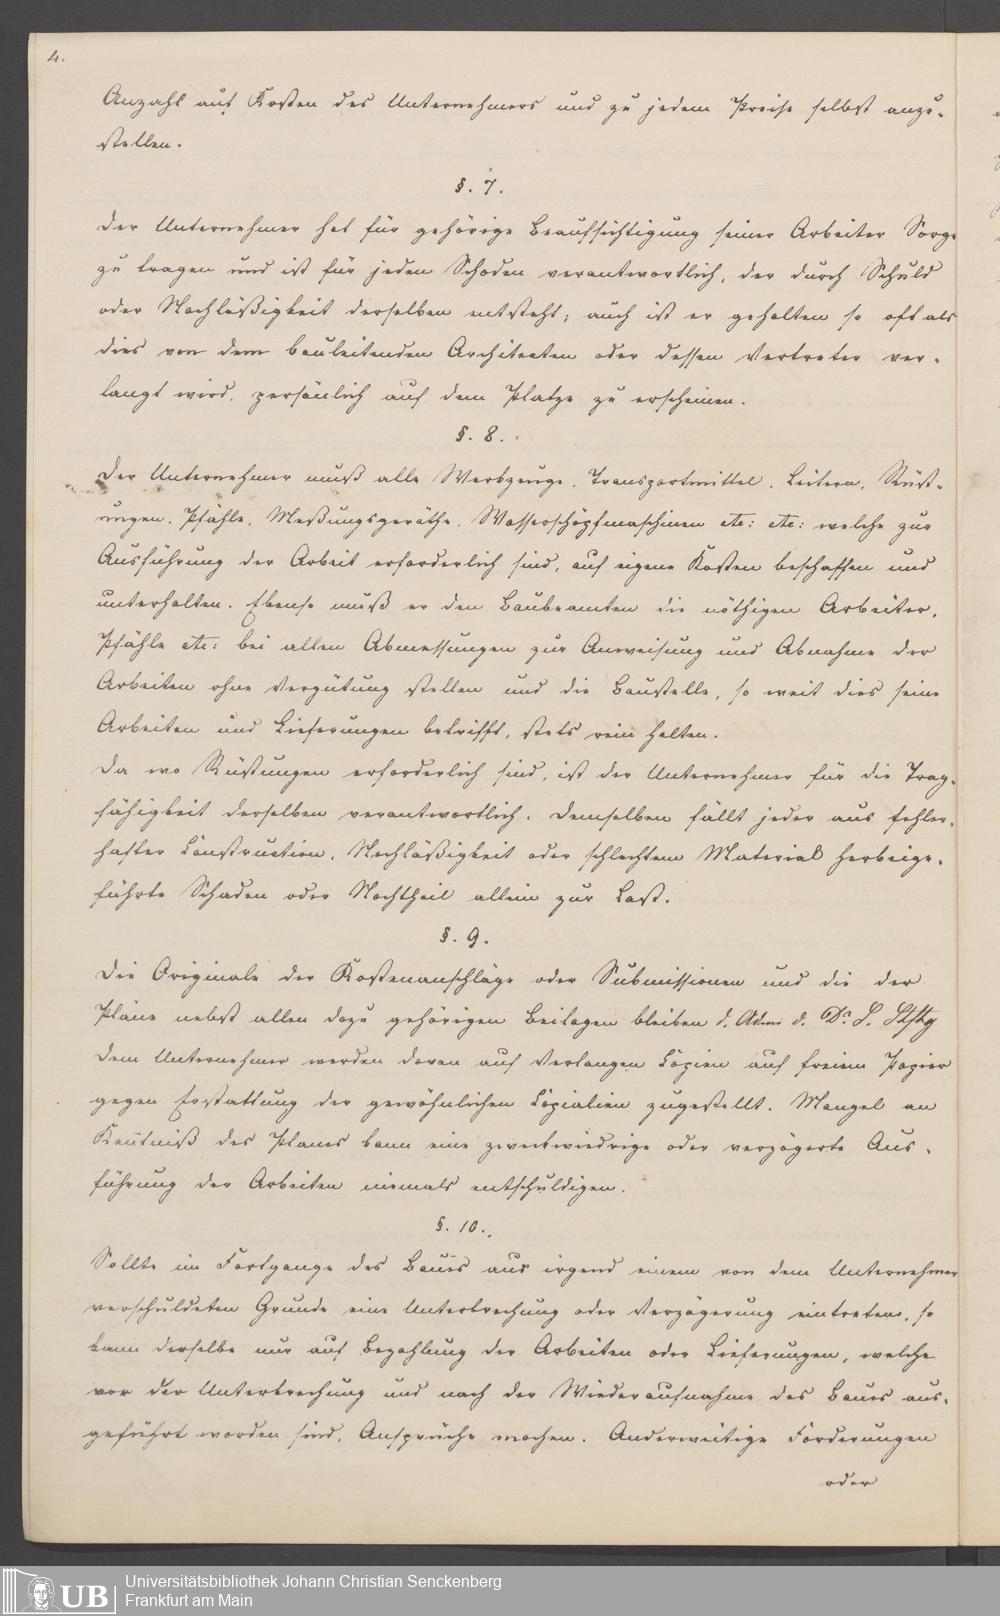 4.
Anzahl auf Kosten des Unternehmers und zu jedem Preise selbst anzu-
stellen.
§. 7.
Der Unternehmer hat für gehörige Beaufsichtigung seiner Arbeiter Sorge
zu tragen und ist für jeden Schaden verantwortlich, der durch Schuld
oder Nachläßigkeit derselben entsteht; auch ist er gehalten so oft als
dies von dem bauleitenden Architecten oder dessen Vertreter ver-
langt wird, persönlich auf dem Platze zu erscheinen.
§. 8.
Der Unternehmer muß alle Werkzeuge, Transportmittel, Leitern, Rüst-
ungen, Pfähle, Meßungsgeräthe, Wasserschöpfmaschinen etc: etc: welche zur
Ausführung der Arbeit erforderlich sind, auf eigene Kosten beschaffen und
unterhalten. Ebenso muß er den Baubeamten die nöthigen Arbeiter,
Pfähle etc: bei allen Abmessungen zur Anweisung und Abnahme der
Arbeiten ohne Vergütung stellen und die Baustelle, so weit dies seine
Arbeiten und Lieferungen betrifft, stets rein halten.
Da wo Rüstungen erforderlich sind, ist der Unternehmer für die Trag-
fähigkeit derselben verantwortlich. Demselben fällt jeder aus fehler-
hafter Construction, Nachläßigkeit oder schlechtem Material herbeige-
führte Schaden oder Nachtheil allein zur Last.
§. 9.
Die Originale der Kostenanschläge oder Submissionen und die der
Pläne nebst allen dazu gehörigen Beilagen bleiben d. Adm. d. Dr. S. Stftg
dem Unternehmer werden davon auf Verlangen Copien auf freiem Papier
gegen Erstattung der gewöhnlichen Copialien zugestellt. Mangel an
Kentniß des Planes kann eine zweckwiedrige oder verzögerte Aus-
führung der Arbeiten niemals entschuldigen.
§. 10.
Sollte im Fortgange des Baues aus irgend einem von dem Unternehmer
verschuldeten Grunde eine Unterbrechung oder Verzögerung eintreten, so
kann derselbe nur auf Bezahlung der Arbeiten oder Lieferungen, welche
vor der Unterbrechung und nach der Wiederaufnahme des Baues aus-
geführt worden sind, Ansprüche machen. Anderweitige Forderungen
oder
UB
Universitätsbibliothek Johann Christian Senckenberg
Frankfurt am Main